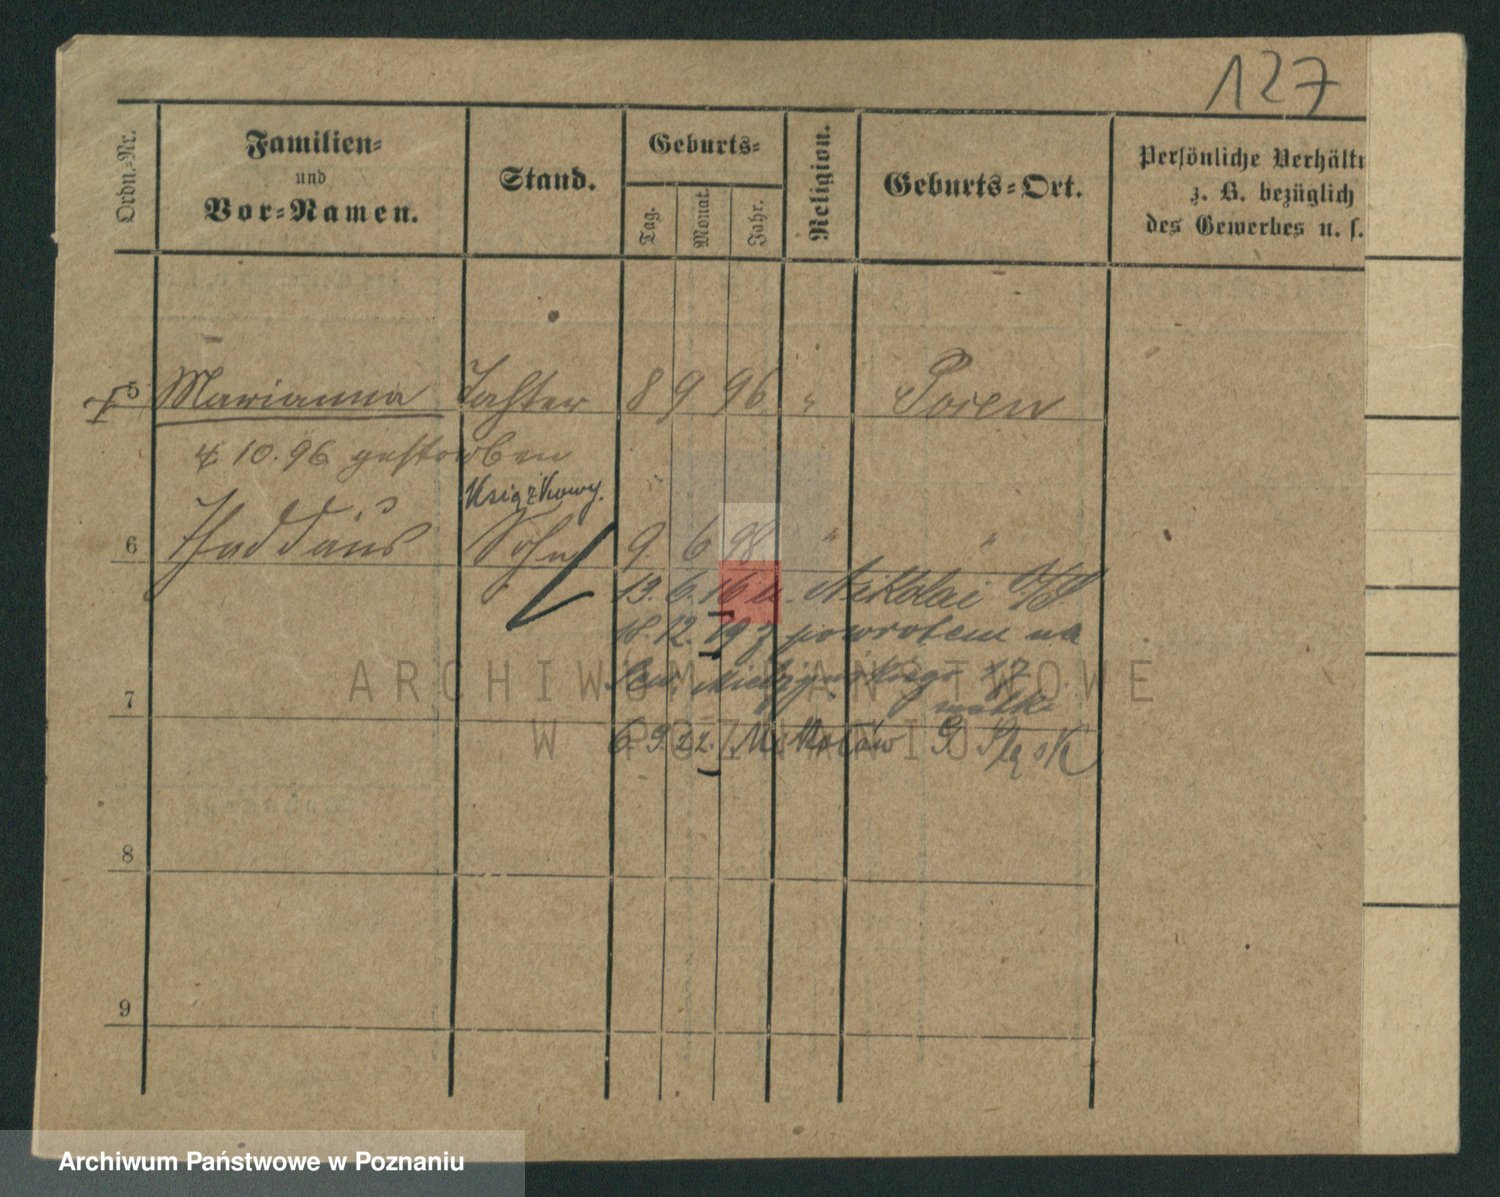 127
Ordn.-Nr.
Familien-
und
Vor-Namen.
Stand.
Geburts-
Tag.
Monat.
Jahr.
Religion.
Geburts-Ort.
Persönliche Verhält
z. B. bezüglich
des Gewerbes u. s.
5 Marianna Tochter 8 9 96 " Posen
10.96 gestorben
Książkowy.
6 Thaddäus Sohn 9. 6 98 " "
13. 6. 16 a. Nikolai O/S
18. 12. 19 z powrotem na
7
6. 9. 22. Mikołów G Śląsk
8
9
ARCHIWUM PAŃSTWOWE
W POZNANIU
Archiwum Państwowe w Poznaniu